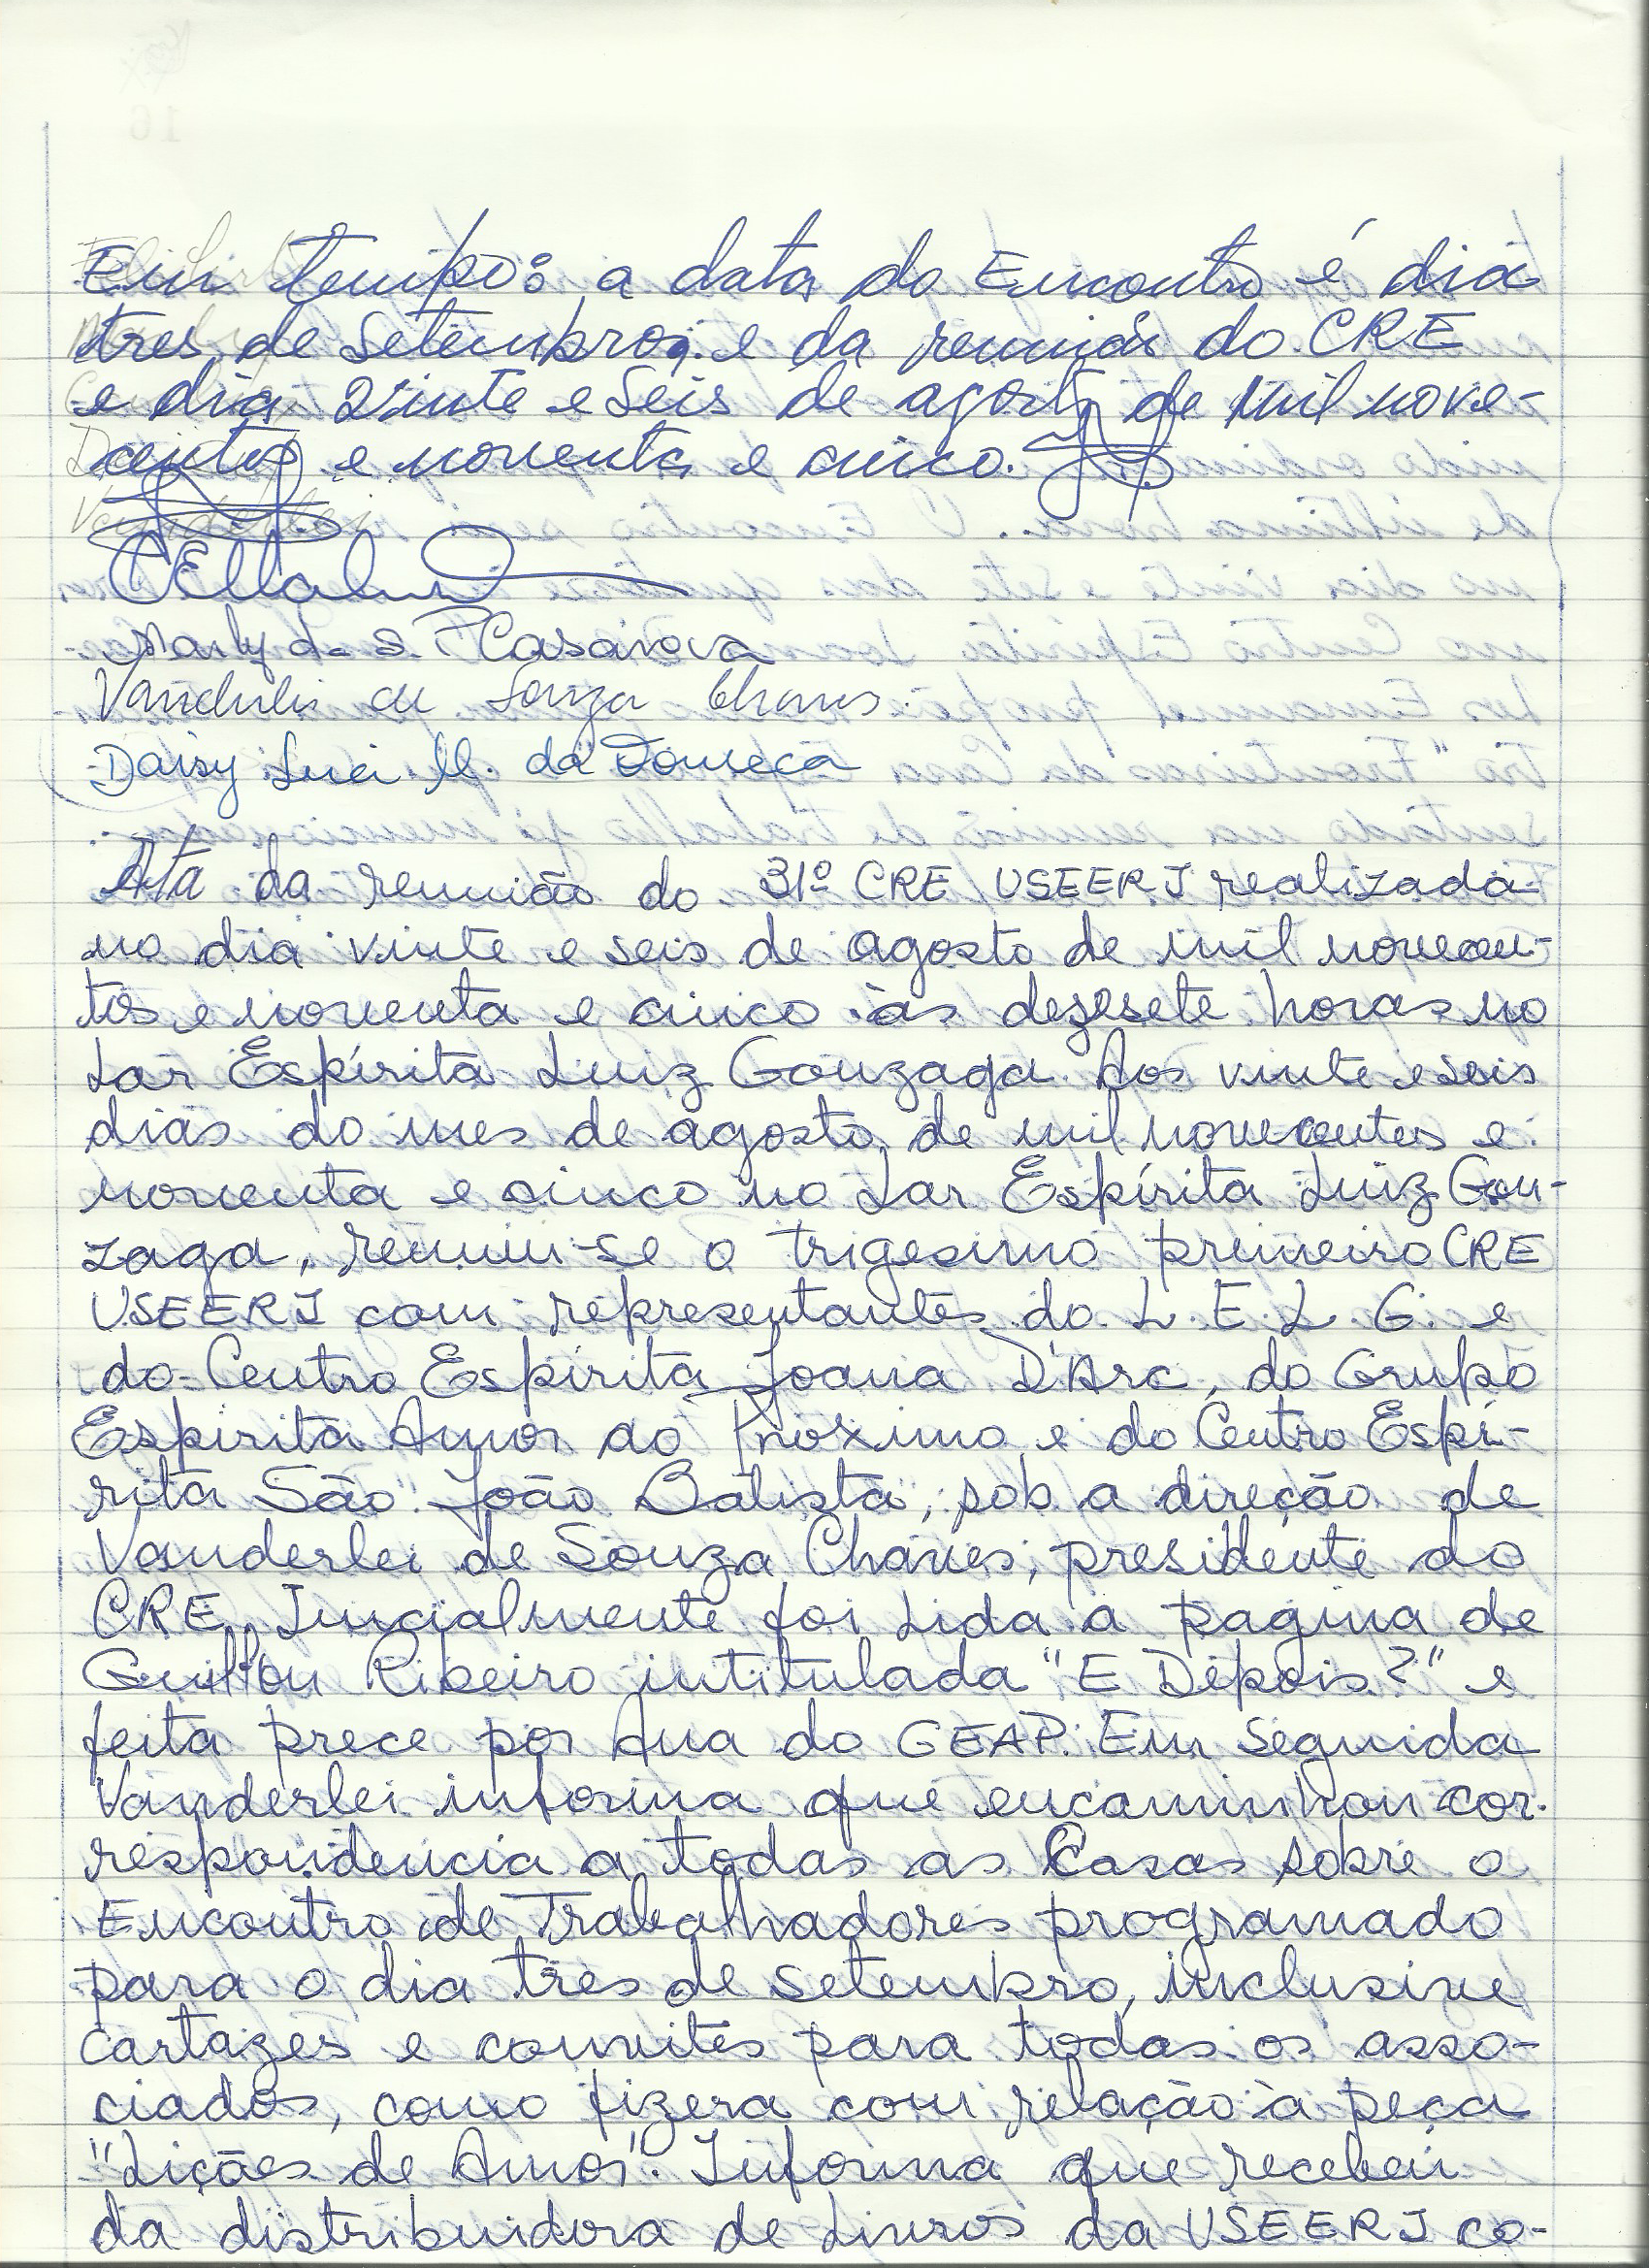 Em tempo: a data do Encontro é dia
tres de Setembro, e da reunião do CRE
e dia vinte e seis de agosto de mil nove-
centos e noventa e cinco.
Marly d. S. P. Casanova
Vanderlei de Souza Chaves.
Daisy Luci M. da Fonseca
Ata da reunião do 31º CRE USEERJ realizada
no dia vinte e seis de agosto de mil novecen-
tos e noventa e cinco às dezesete horas no
Lar Espírita Luiz Gonzaga. Aos vinte e seis
dias do mes de agosto de mil novecentos e
noventa e cinco no Lar Espírita Luiz Gon-
zaga, reuniu-se o trigesimo primeiro CRE
USEERJ com representantes do L. E. L. G. e
do Centro Espírita Joana D'Arc, do Grupo
Espírita Amor ao Próximo e do Centro Espí-
rita São João Batista, sob a direção de
Vanderlei de Souza Chaves, presidente do
CRE. Inicialmente foi lida a pagina de
Guillon Ribeiro intitulada "E Depois?" e
feita prece por Ana do GEAP. Em seguida
Vanderlei informa que encaminhou cor-
respondencia a todas as Casas sobre o
Encontro de Trabalhadores programado
para o dia tres de setembro, inclusive
cartazes e convites para todas os asso-
ciados, como fizera com relação à peça
"Lições de Amor". Informa que recebeu
da distribuidora de Livros da USEERJ co-